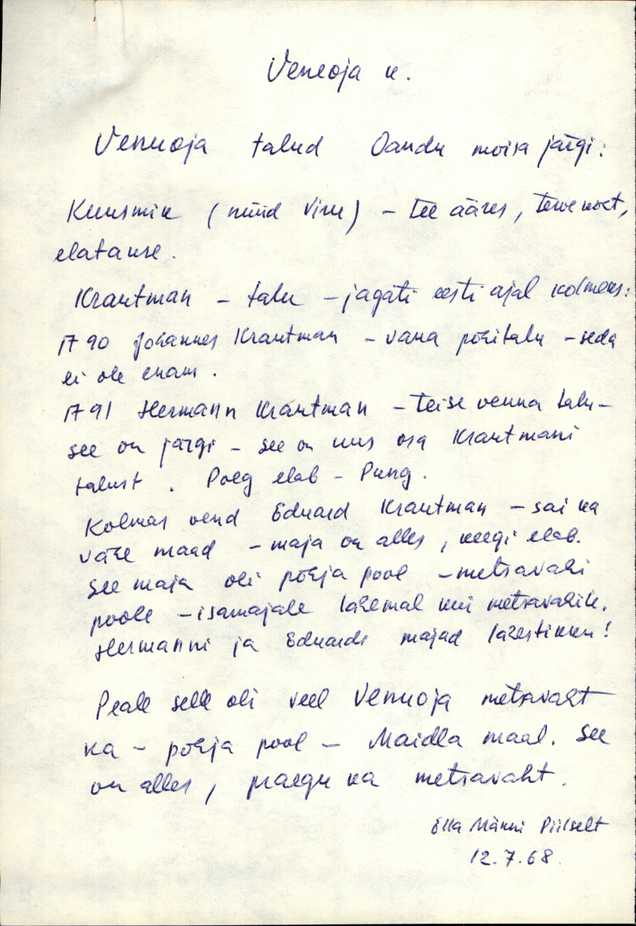 Venuoja k.
Venuoja talud Oandu mõisa järgi:
Kuusmik (nüüd Viru) – tee ääres, terve koht,
elatakse.
Krautman – talu – jagati eesti ajal kolmeks:
A 90 Johannes Krautman – vana põhitalu – seda
ei ole enam.
A 91 Hermann Krautman – teise venna talu –
see on järgi – see on uus osa Krautmani
talust. Poeg elab – Pung.
Kolmas vend Eduard Krautman – sai ka
vähe maad – maja on alles, keegi elab.
See maja oli põhja pool – metsavahi
poole – isamajale lähemal kui metsavahile.
Hermanni ja Eduardi majad lähestikku!
Peale selle oli veel Venuoja metsavaht
ka – põhja pool – Maidla maal. See
on alles, praegu ka metsavaht.
Ella Männi Piilselt
12.7.68.